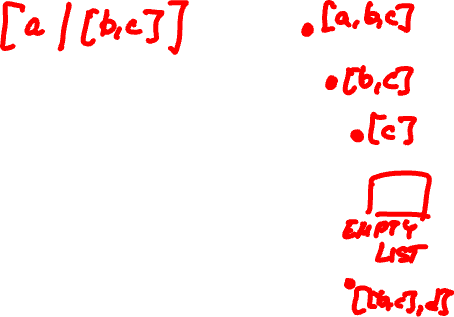 [a | [b,c]]
.[a,b,c]
.[b,c]
.[c]
EMPTY
LIST
.[[b,c],d]